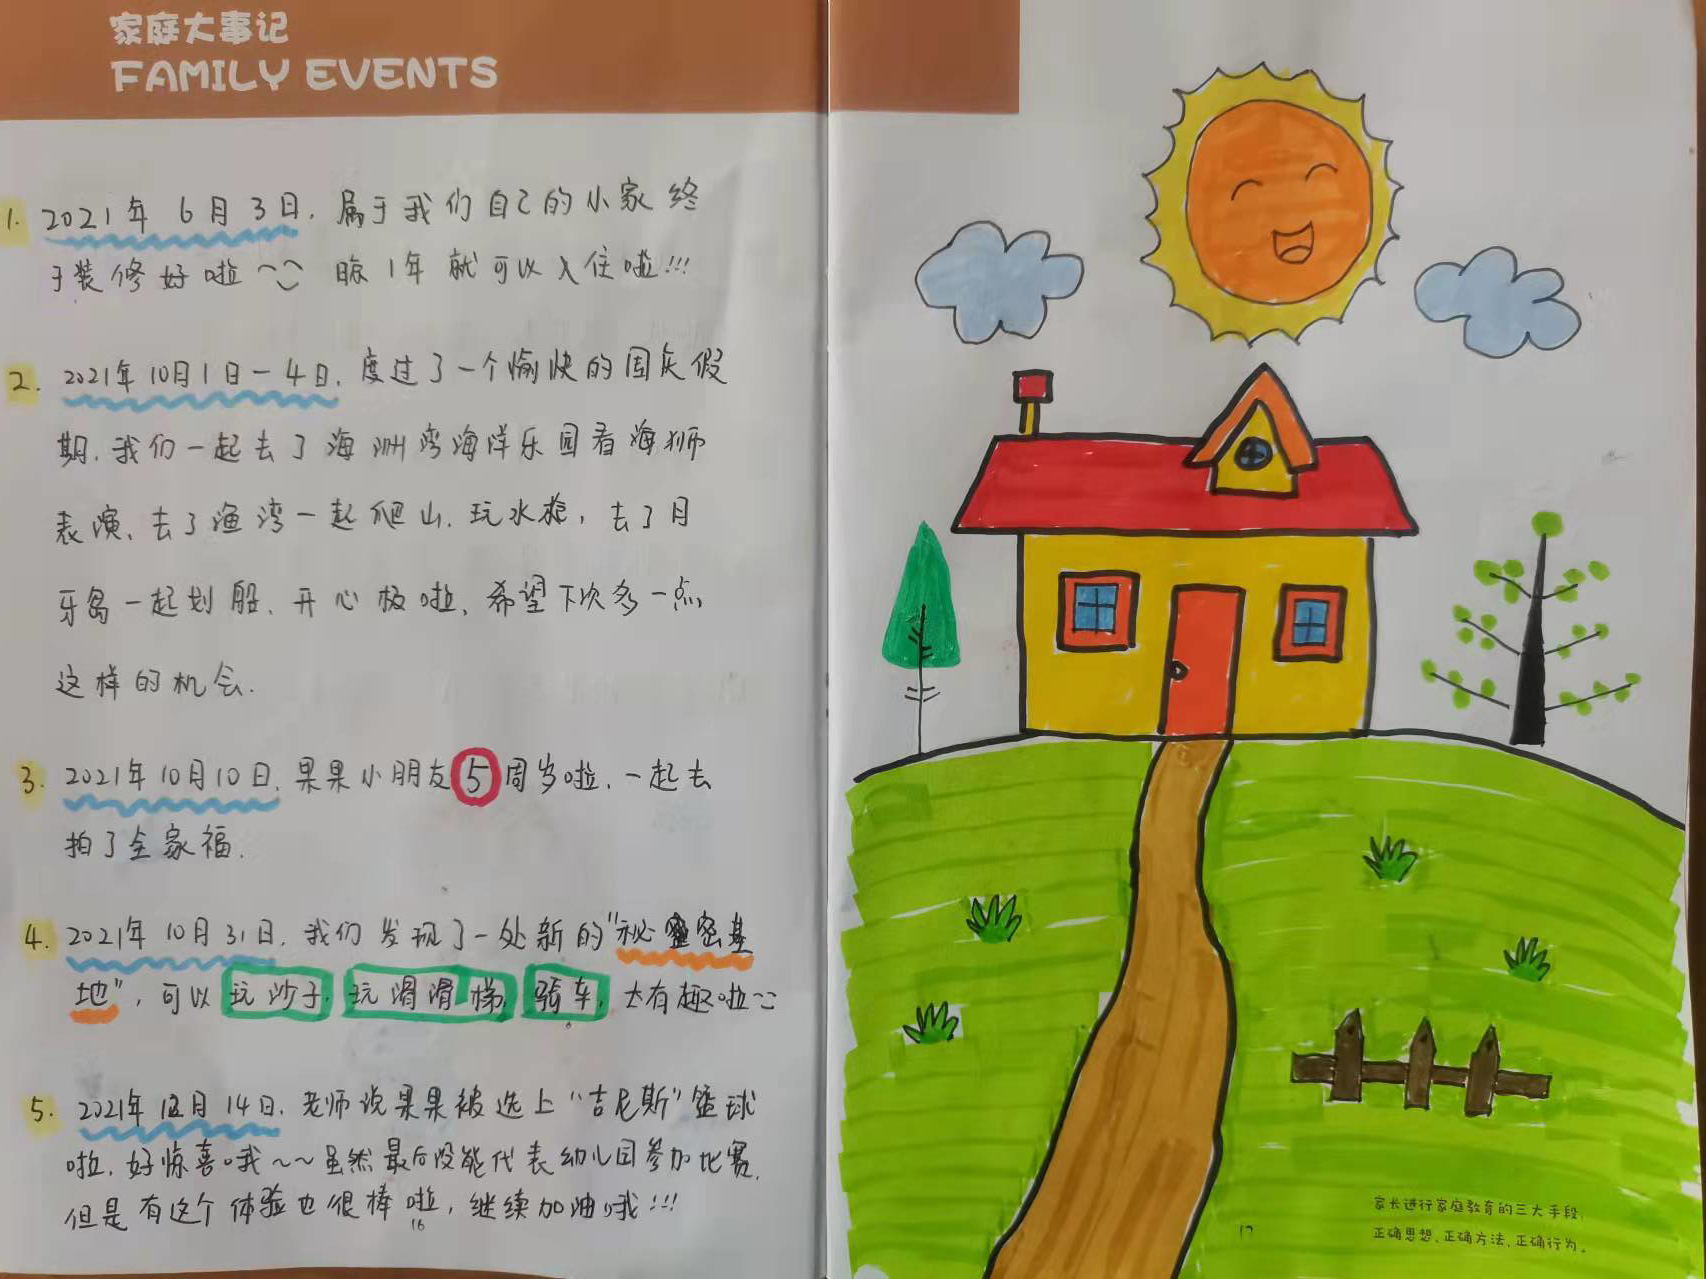 家庭大事记
FAMILY EVENTS
1. 2021年6月3日，属于我们自己的小家终
于装修好啦~~ 晾1年就可以入住啦!!!
2. 2021年10月1日-4日，度过了一个愉快的国庆假
期，我们一起去了海洲湾海洋乐园看海狮
表演，去了渔湾一起爬山，玩水枪，去了月
牙岛一起划船，开心极啦，希望下次多一点
这样的机会.
3. 2021年10月10日，果果小朋友5周岁啦，一起去
拍了全家福.
4. 2021年10月31日，我们发现了一处新的“秘密基
地”，可以玩沙子，玩滑滑梯，骑车，太有趣啦~~
5. 2021年12月14日，老师说果果被选上“吉尼斯”篮球
啦，好惊喜哦~~虽然最后没能代表幼儿园参加比赛，
但是有这个体验也很棒啦，继续加油哦!!!
16
家长进行家庭教育的三大手段：
正确思想、正确方法、正确行为。
17